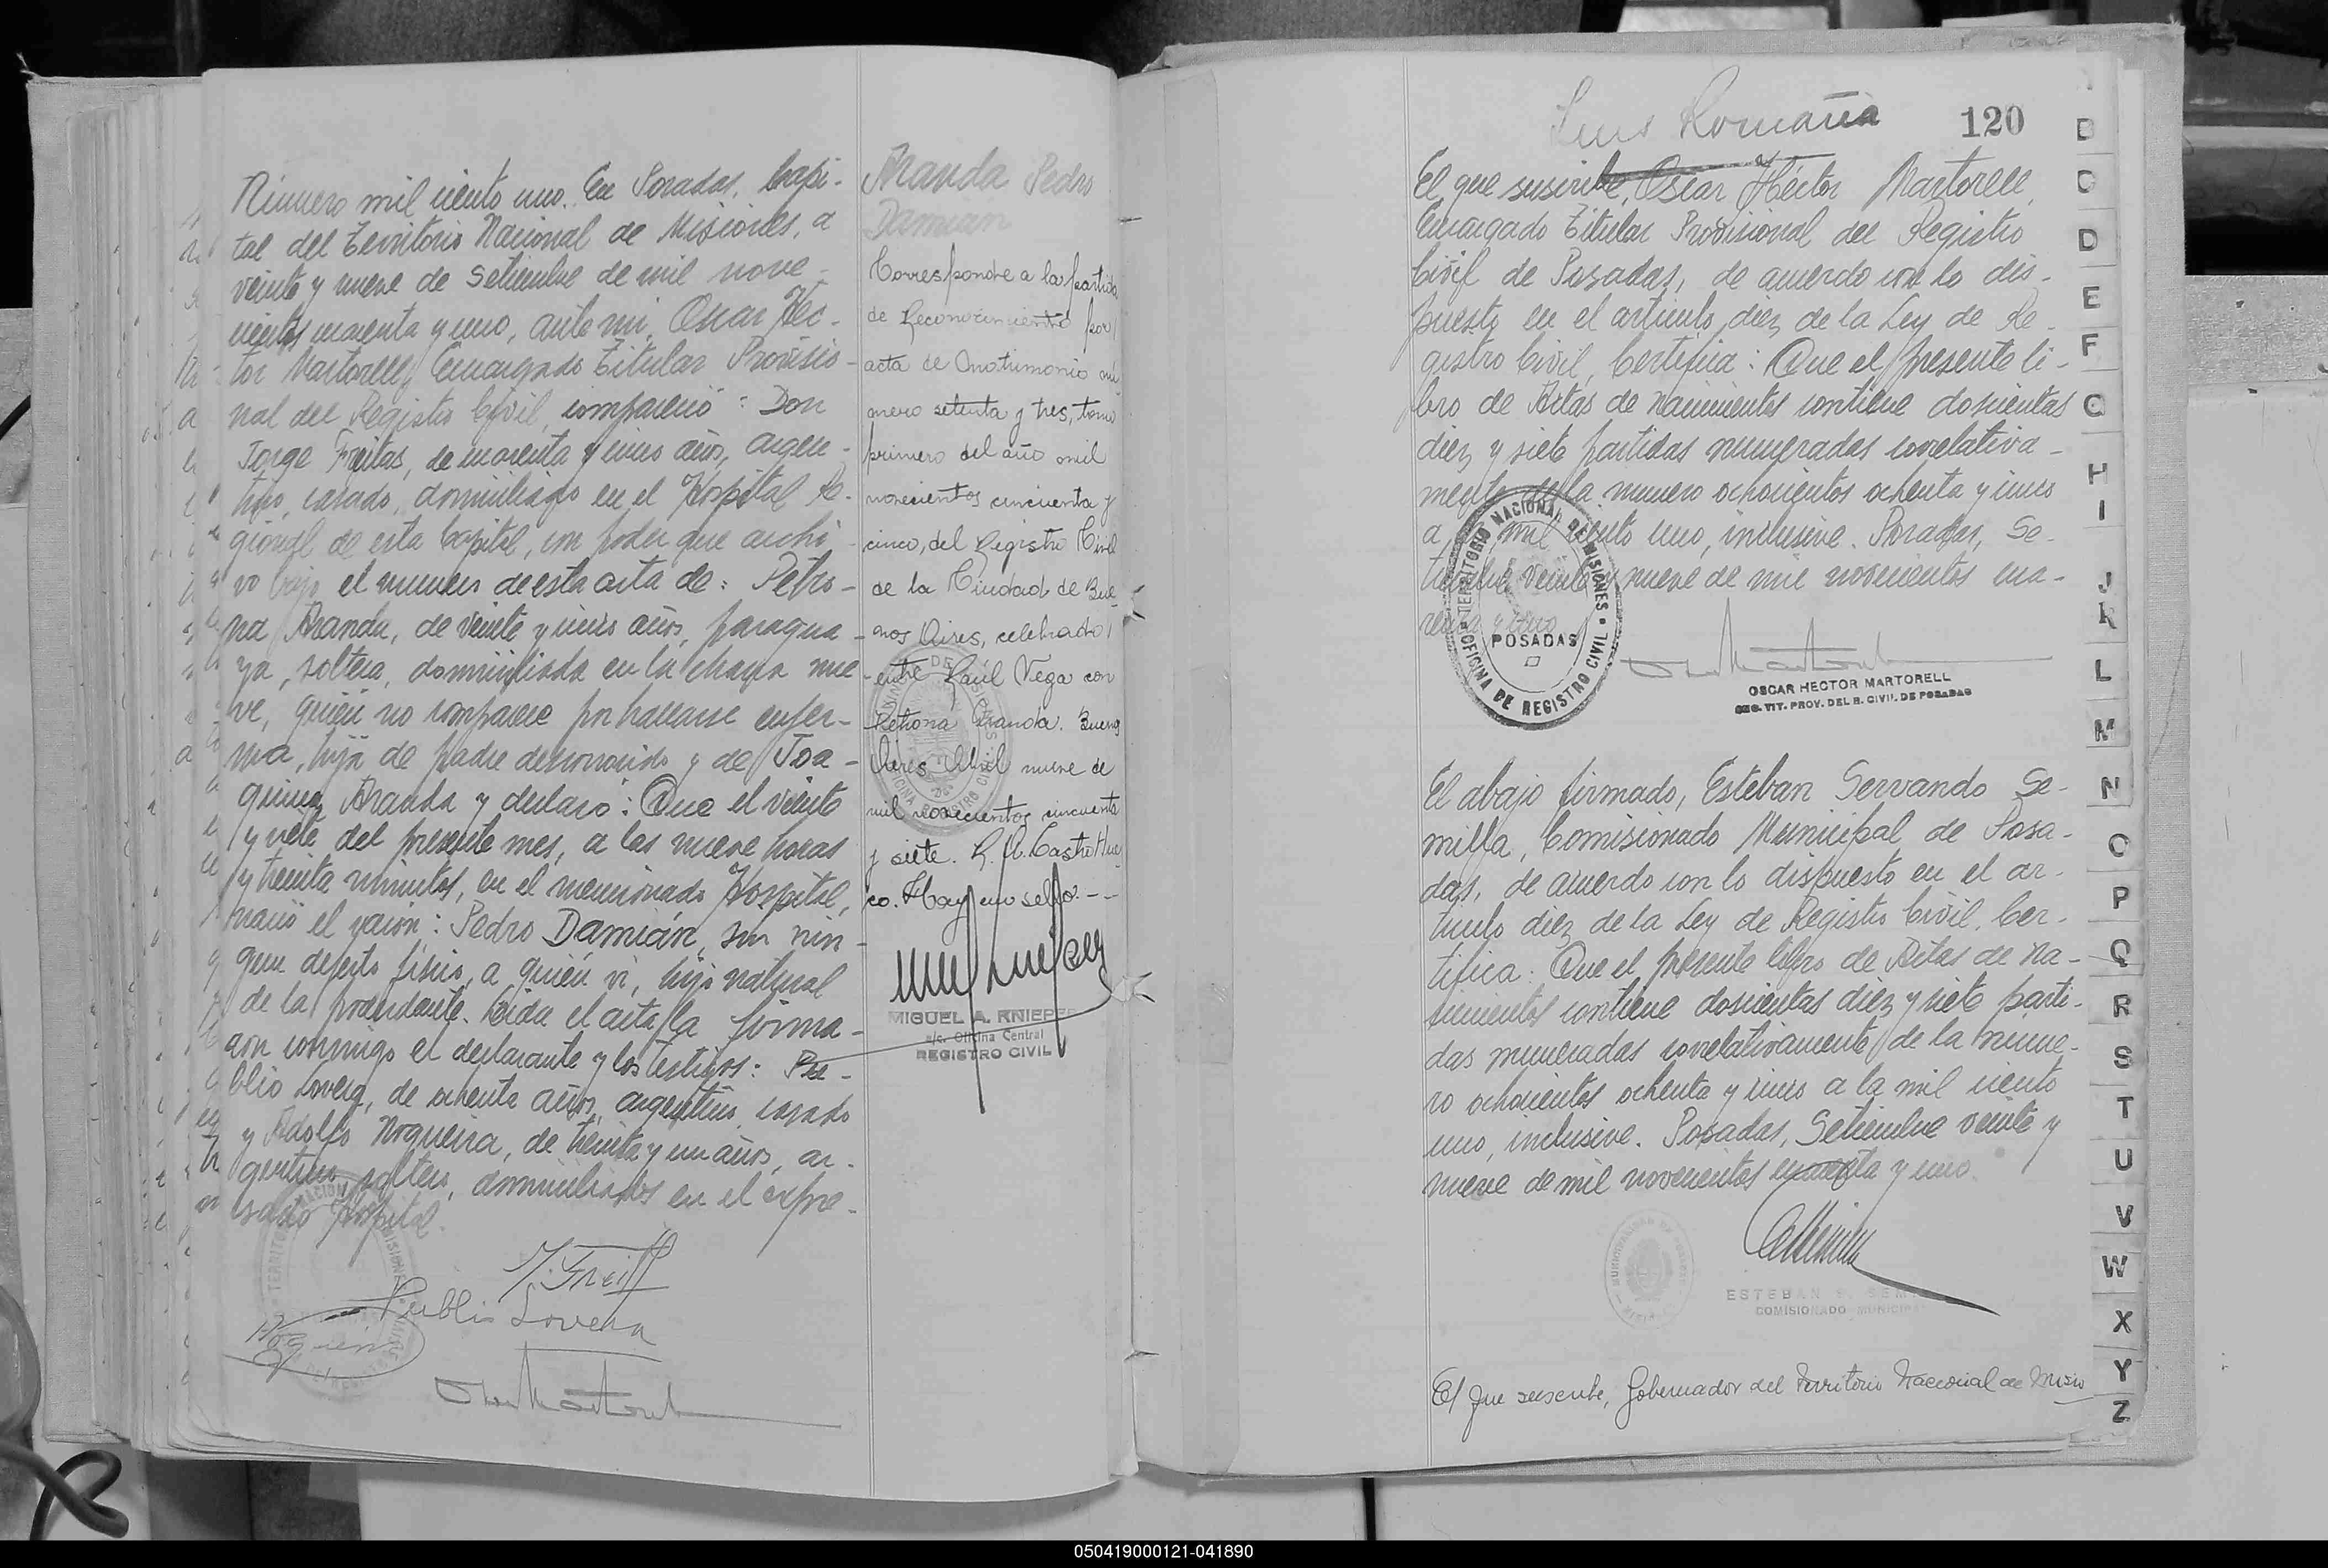 Número mil ciento uno. En Posadas, Capi-
tal del Territorio Nacional de Misiones, a
veinte y nueve de Setiembre de mil nove-
cientos cuarenta y uno, ante mi, Oscar Hec-
tor Martorell, Encargado Titular Provisio-
nal del Registro Civil, compareció: Don
Jorge Freitas, de cuarenta y cinco años, argen-
tino, casado, domiciliado en el Hospital Re-
gional de esta Capital, con poder que archi-
vo bajo el numero de esta acta de: Petro-
na Aranda, de veinte y cinco años, paragua-
ya, soltera, domiciliada en la chacra nue-
ve, quien no comparece por hallarse enfer-
ma, hija de padre desconocido y de Joa-
quina Aranda y declaró: Que el veinte
y siete del presente mes, a las nueve horas
y treinta minutos, en el mencionado Hospital,
nació el varón: Pedro Damián, sin nin-
gun defecto físico, a quien vi, hijo natural
de la mandante. Leida el acta la firma-
ron conmigo el declarante y los testigos: Pu-
blio Lovera, de ochenta años, argentino, casado
y Adolfo Nogueira, de treinta y un años, ar-
gentino, soltero, domiciliados en el expre-
sado Hospital.
J. Freit
Publio Lovera
Aranda Pedro
Damian
Corresponde a la partida
de Reconocimiento por
acta de Matrimonio nú
mero setenta y tres, tomo
primero del año mil
novecientos cincuenta y
cinco, del Registro Civil
de la Ciudad de Bue
nos Aires, celebrado
entre Raúl Vega con
Petrona Aranda. Buenos
Aires Abril nueve de
mil novecientos cincuenta
y siete. R. A. Castro Hue
co. Hay un sello. ---
MIGUEL A. KNIEPE
a/c. Oficina Central
REGISTRO CIVIL
Luis Romaña
120
El que suscribe, Oscar Héctor Martorell,
Encargado Titular Provisional del Registro
Civil de Posadas, de acuerdo con lo dis-
puesto en el articulo diez de la Ley de Re-
gistro Civil, Certifica: Que el presente li-
bro de Actas de Nacimientos contiene doscientas
diez y siete partidas numeradas correlativa-
mente de la numero ochocientos ochenta y cinco
a mil ciento uno, inclusive. Posadas, Se-
tiembre veinte y nueve de mil novecientos cua-
renta y uno
TERRITORIO NACIONAL DE MISIONES
POSADAS
OFICINA DE REGISTRO CIVIL
OSCAR HECTOR MARTORELL
ENC. TIT. PROV. DEL R. CIVIL DE POSADAS
El abajo firmado, Esteban Servando Se-
milla, Comisionado Municipal de Posa-
das, de acuerdo con lo dispuesto en el ar-
ticulo diez de la Ley de Registro Civil, Cer-
tifica: Que el presente libro de Actas de Na-
cimientos contiene doscientas diez y siete parti-
das numeradas correlativamente de la núme-
ro ochocientos ochenta y cinco a la mil ciento
uno, inclusive. Posadas, Setiembre veinte y
nueve de mil novecientos cuarenta y uno.
ESTEBAN S. SEM
COMISIONADO MUNICIPA
El que suscribe, Gobernador del Territorio Nacional de Misio
B
C
D
E
F
G
H
I
J
K
L
M
N
O
P
Q
R
S
T
U
V
W
X
Y
Z
050419000121-041890